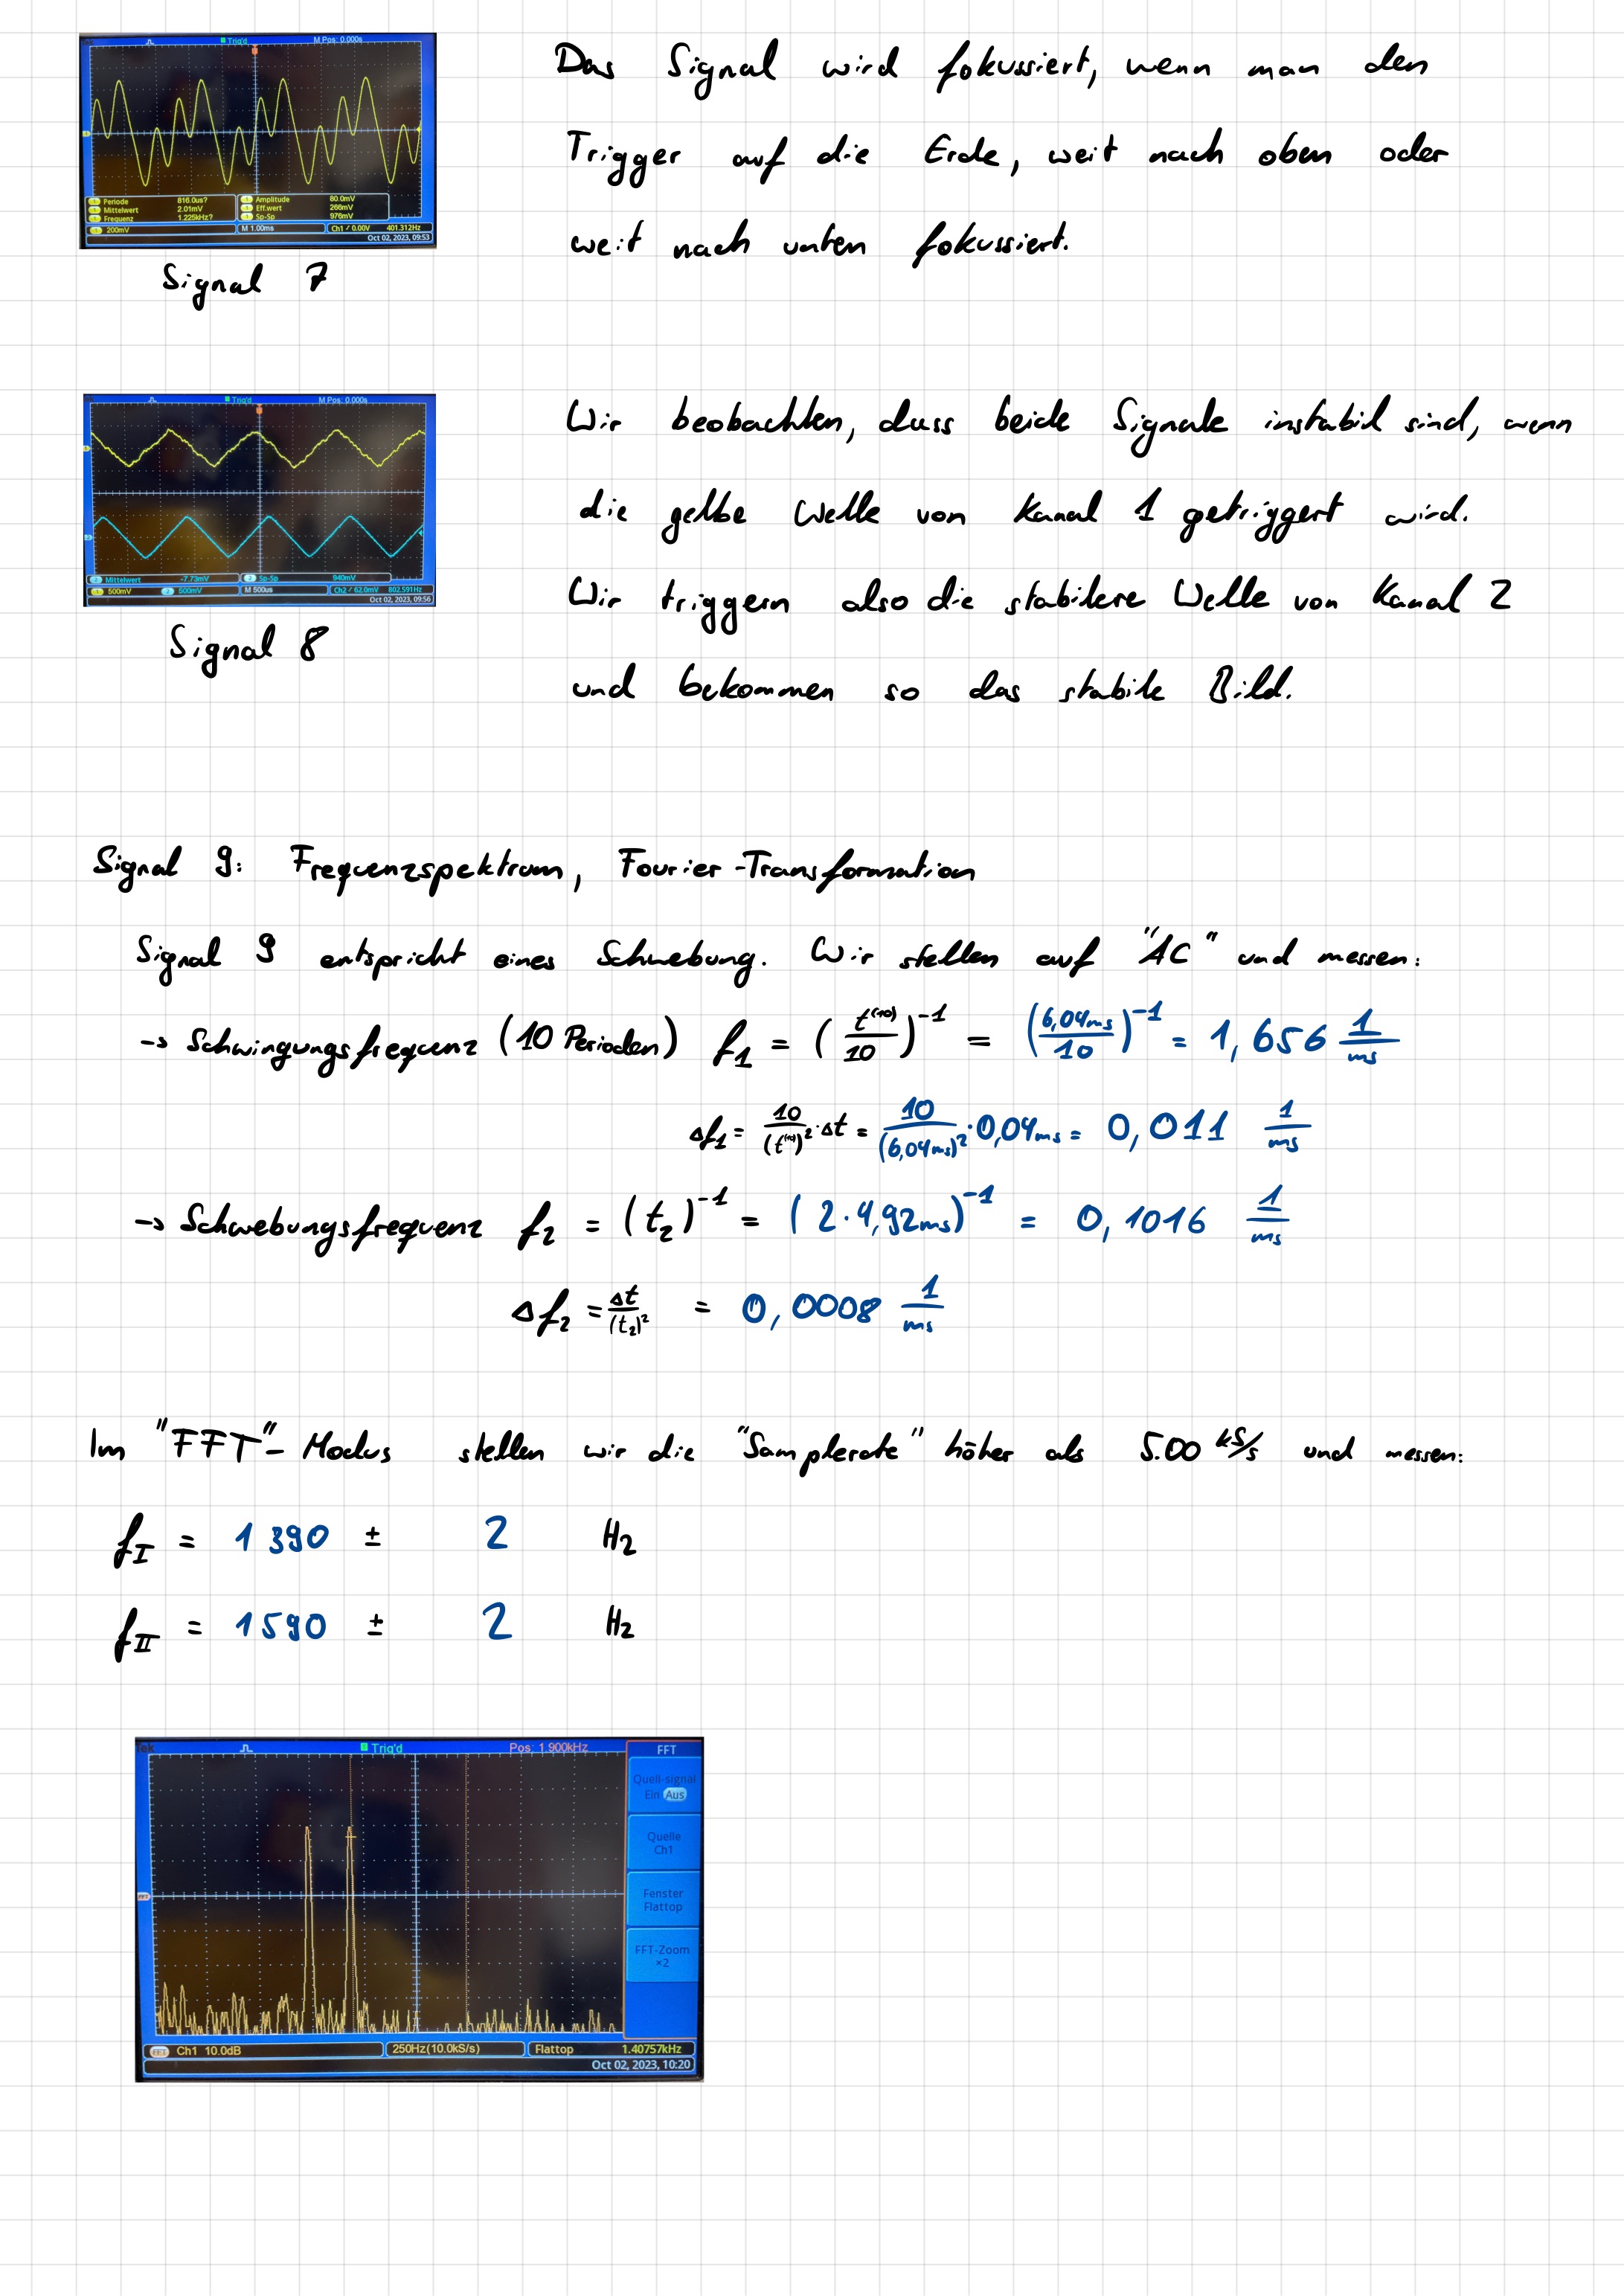 Trig'd M Pos: 0.000s
Periode 816.0us?
Mittelwert 2.01mV
Frequenz 1.225kHz?
Amplitude 80.0mV
Eff.wert 266mV
Sp-Sp 976mV
200mV M 1.00ms Ch1 / 0.00V 401.312Hz
Oct 02, 2023, 09:53
Signal 7
Das Signal wird fokussiert, wenn man den
Trigger auf die Erde, weit nach oben oder
weit nach unten fokussiert.
Trig'd M Pos: 0.000s
Mittelwert -7.73mV Sp-Sp 940mV
500mV 500mV M 500us Ch2 / 62.0mV 802.591Hz
Oct 02, 2023, 09:56
Signal 8
Wir beobachten, dass beide Signale instabil sind, wenn
die gelbe Welle von Kanal 1 getriggert wird.
Wir triggern also die stabilere Welle von Kanal 2
und bekommen so das stabile Bild.
Signal 9: Frequenzspektrum, Fourier-Transformation
Signal 9 entspricht eines Schwebung. Wir stellen auf "AC" und messen:
→ Schwingungsfrequenz (10 Perioden) f₁ = (t⁽¹⁰⁾/10)⁻¹ = (6,04ms/10)⁻¹ = 1,656 1/ms
Δf₁ = 10/(t⁽¹⁰⁾)² · Δt = 10/(6,04ms)² · 0,04ms = 0,011 1/ms
→ Schwebungsfrequenz f₂ = (t₂)⁻¹ = (2·4,92ms)⁻¹ = 0,1016 1/ms
Δf₂ = Δt/(t₂)² = 0,0008 1/ms
Im "FFT"-Modus stellen wir die "Samplerate" höher als 5.00 kS/s und messen:
f_I = 1390 ± 2 Hz
f_II = 1590 ± 2 Hz
Tek Trig'd Pos: 1.900kHz FFT
Quell-signal
Ein Aus
Quelle
Ch1
Fenster
Flattop
FFT-Zoom
×2
Ch1 10.0dB 250Hz(10.0kS/s) Flattop 1.40757kHz
Oct 02, 2023, 10:20